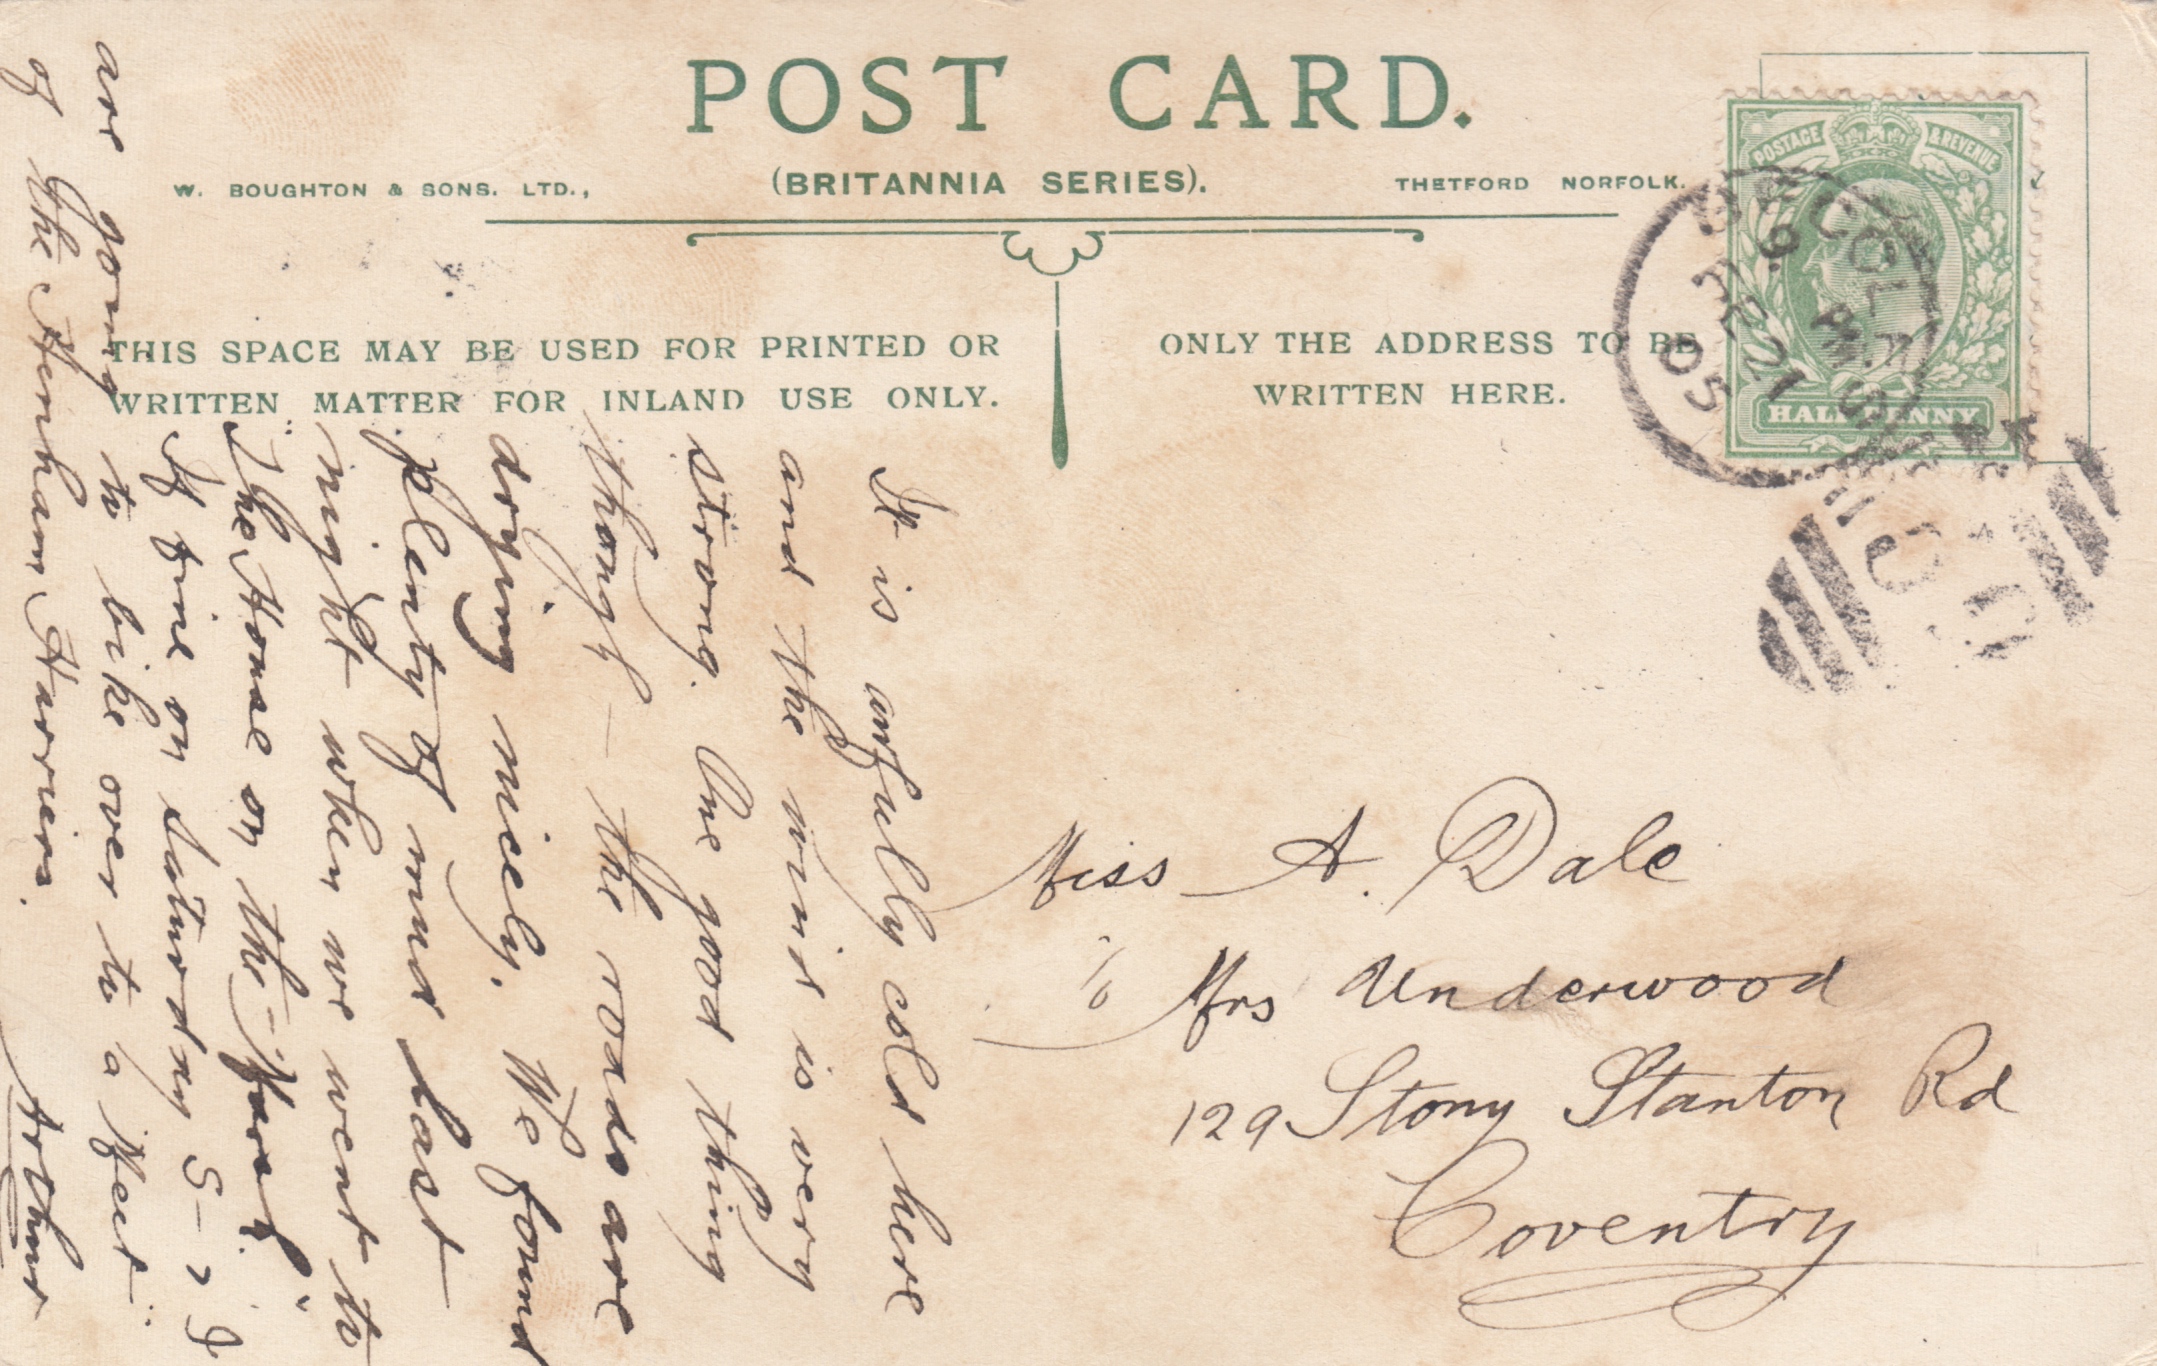 POST CARD.
W. BOUGHTON & SONS. LTD., (BRITANNIA SERIES). THETFORD NORFOLK.
THIS SPACE MAY BE USED FOR PRINTED OR
WRITTEN MATTER FOR INLAND USE ONLY.
ONLY THE ADDRESS TO BE
WRITTEN HERE.
POSTAGE & REVENUE
HALFPENNY
9.
PM
DE 21
05
It is awfully cold here
and the wind is very
strong. One good thing
though – the roads are
drying nicely. We found
plenty of mud last
night when we went to
"The House on the Marsh"
If fine on Saturday S– & I
are going to bike over to a "Meet"
of the Henham Harriers.
Arthur
Miss A. Dale
c/o Mrs Underwood
129 Stony Stanton Rd
Coventry